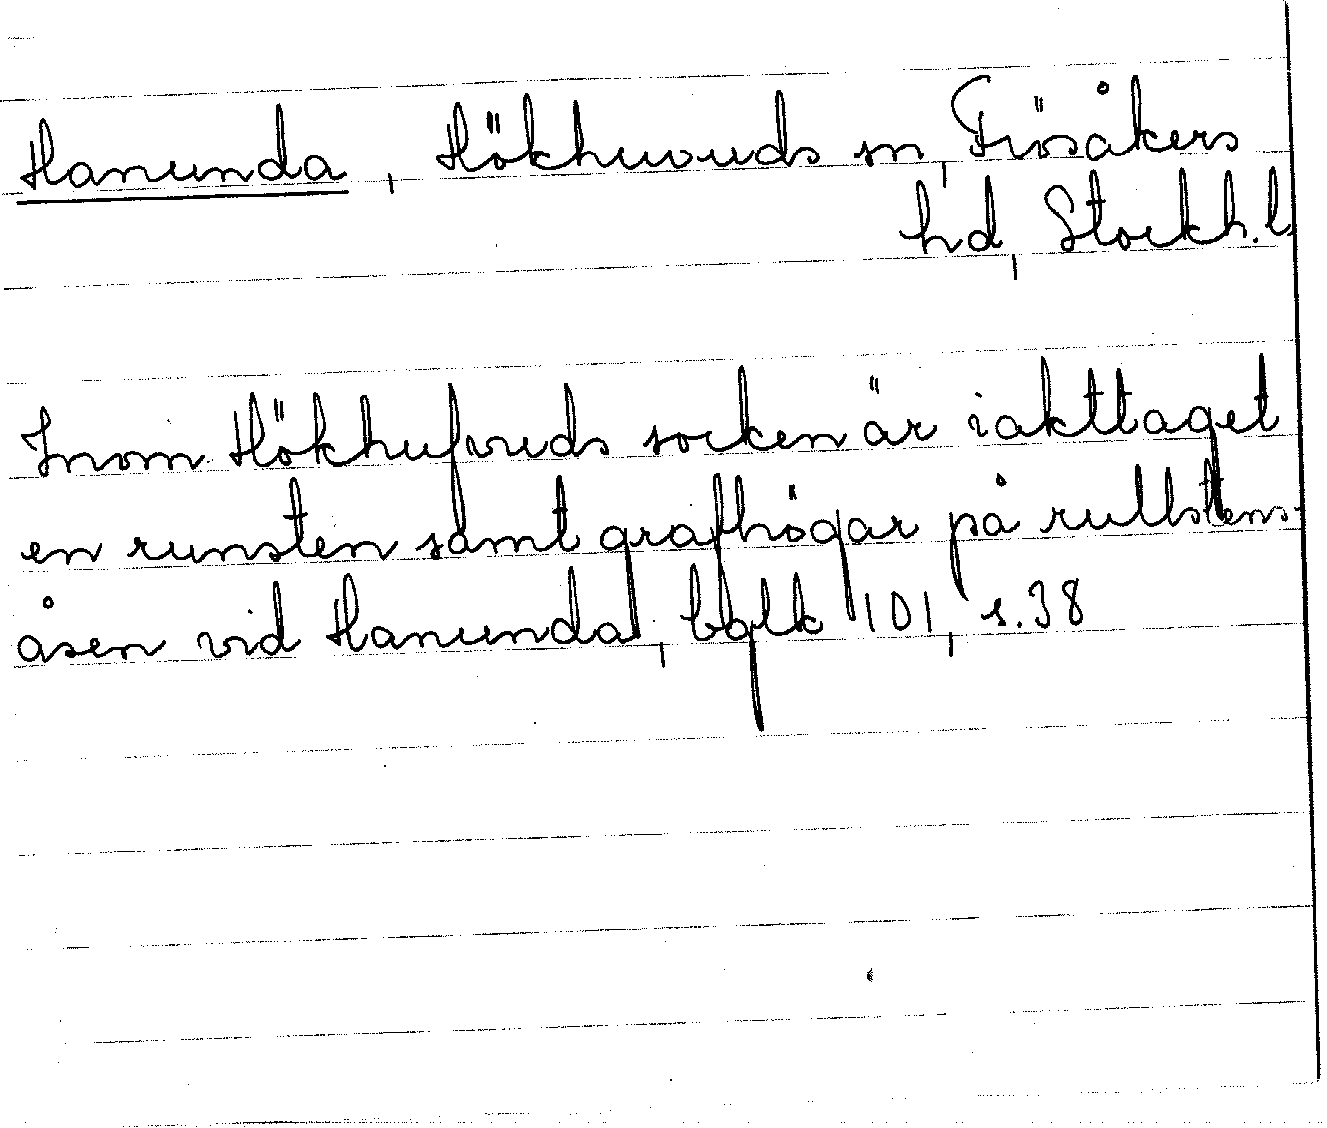 Hanunda, Hökhuvuds sn, Frösåkers
hd, Stockh.l.
Inom Hökhufvuds socken är iakttaget
en runsten samt grafhögar på rullstens-
åsen vid Hanunda, balk 101, s.38